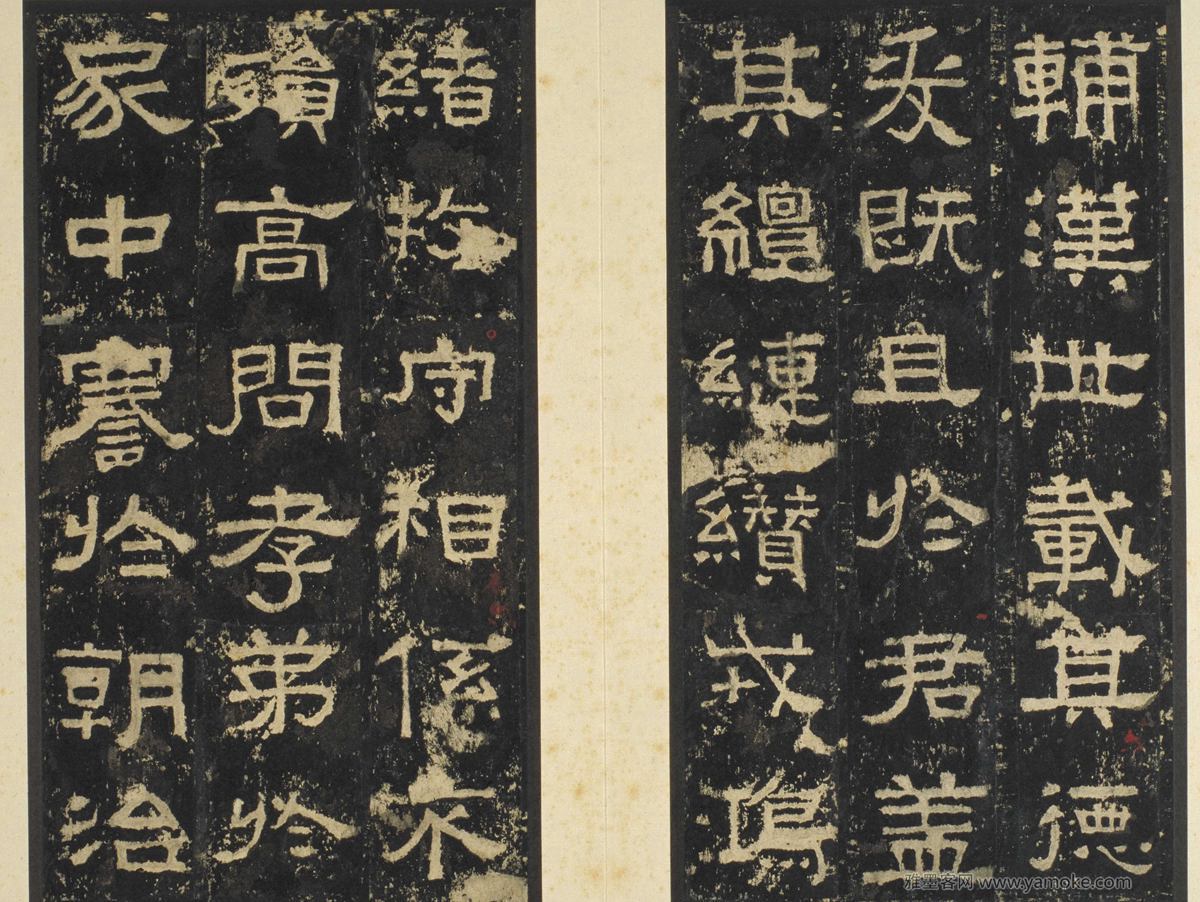 輔漢世載其德
爰既且於君盖
其繵縺纘戎鴻
緒牧守相係不
殞高問孝弟於
家中謇於朝治
雅墨客网 www.yamoke.com